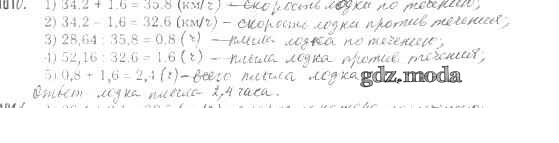 1) 34,2 + 1,6 = 35,8 (км/ч) – скорость лодки по течению;
2) 34,2 – 1,6 = 32,6 (км/ч) – скорость лодки против течения;
3) 28,64 : 35,8 = 0,8 (ч) – плыла лодка по течению;
4) 52,16 : 32,6 = 1,6 (ч) – плыла лодка против течения;
5) 0,8 + 1,6 = 2,4 (ч) – всего плыла лодка
gdz.moda
Ответ лодка плыла 2,4 часа.